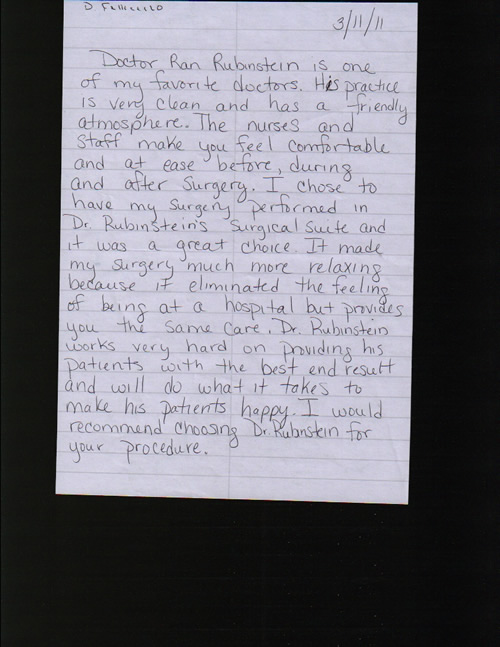 D
3/11/11
Doctor Ran Rubinstein is one
of my favorite doctors. His practice
is very clean and has a friendly
atmosphere. The nurses and
staff make you feel comfortable
and at ease before, during
and after surgery. I chose to
have my surgery performed in
Dr. Rubinstein's surgical suite and
it was a great choice. It made
my surgery much more relaxing
because it eliminated the feeling
of being at a hospital but provides
you the same care. Dr. Rubinstein
works very hard on providing his
patients with the best end result
and will do what it takes to
make his patients happy. I would
recommend choosing Dr. Rubinstein for
your procedure.